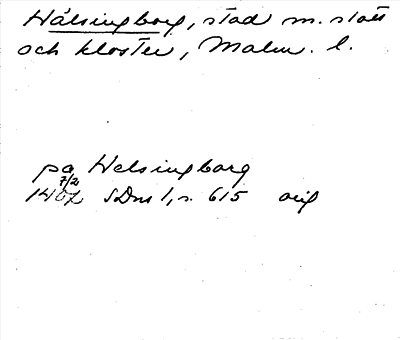 Hälsingborg, stad m. slott
och kloster, Malm. l.
pa Helsingborg
7/2
1402 SDns 1, s. 615 orig